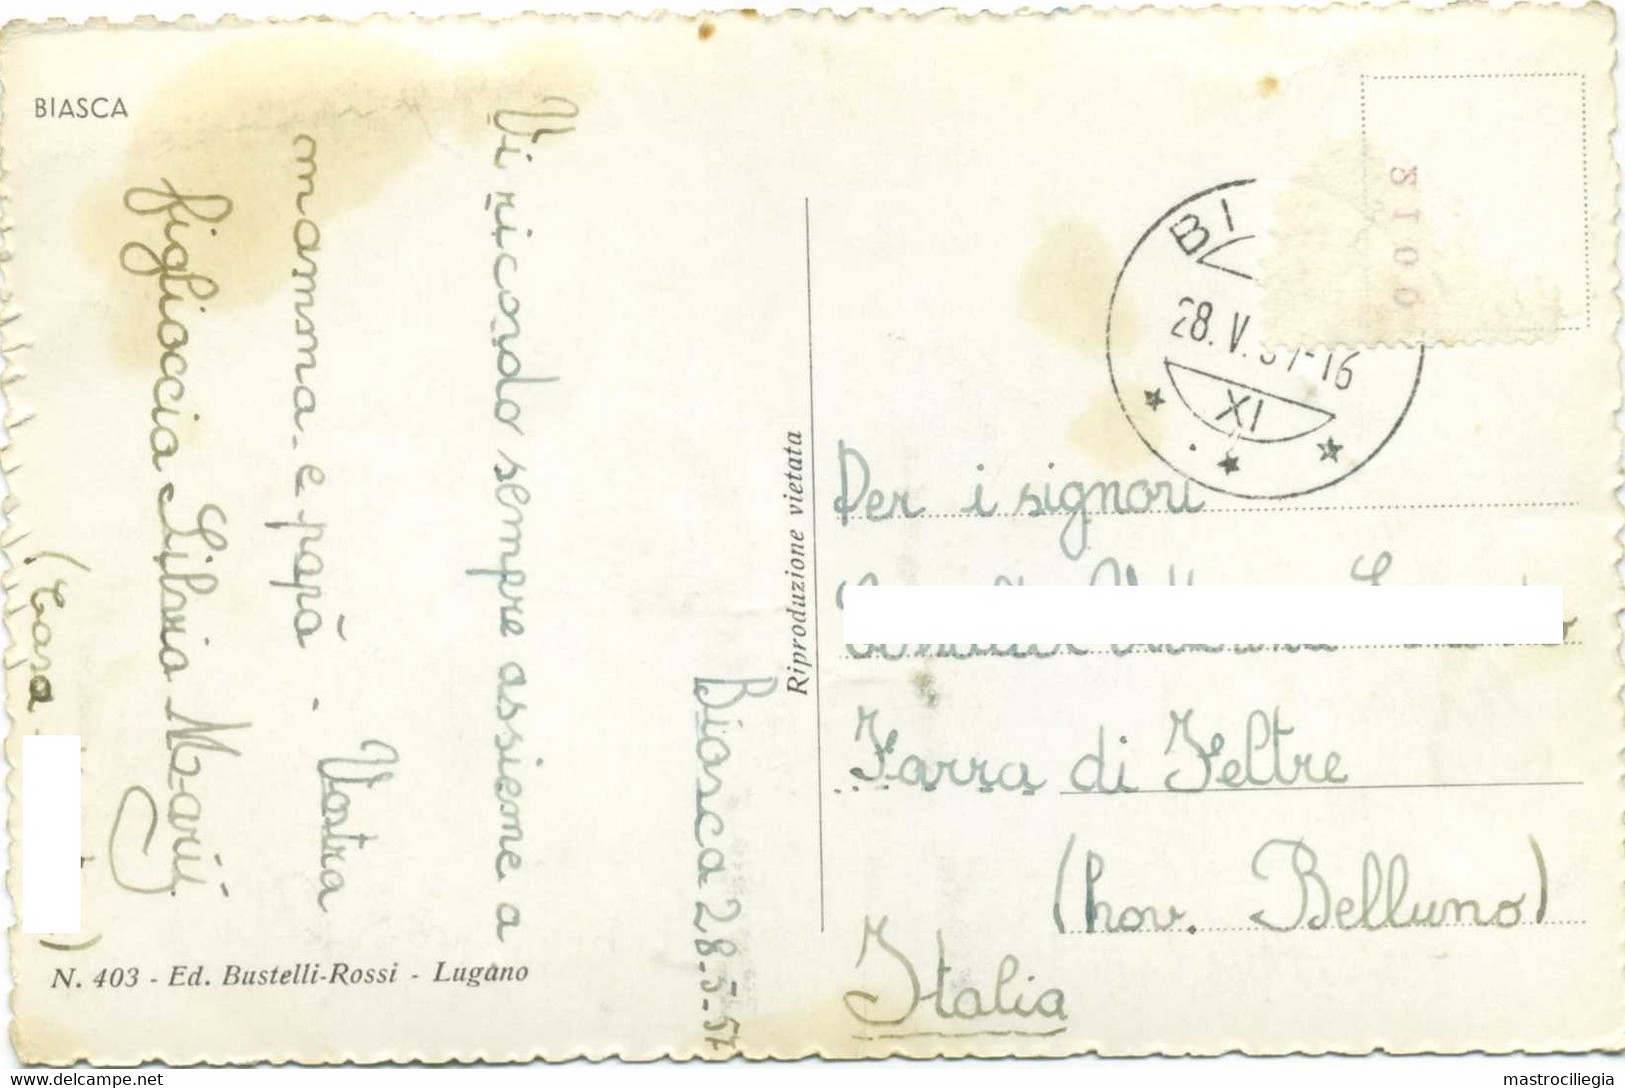 BIASCA
Biasca 28-5-57
Vi ricordo sempre assieme a
mamma e papà. Vostra
figlioccia Silvia Mary
(Casa
)
N. 403 - Ed. Bustelli-Rossi - Lugano
Riproduzione vietata
8100
BI
28. V. 57-16
XI
Per i signori
Farra di Feltre
(Prov. Belluno)
Italia
www.delcampe.net
mastrociliegia